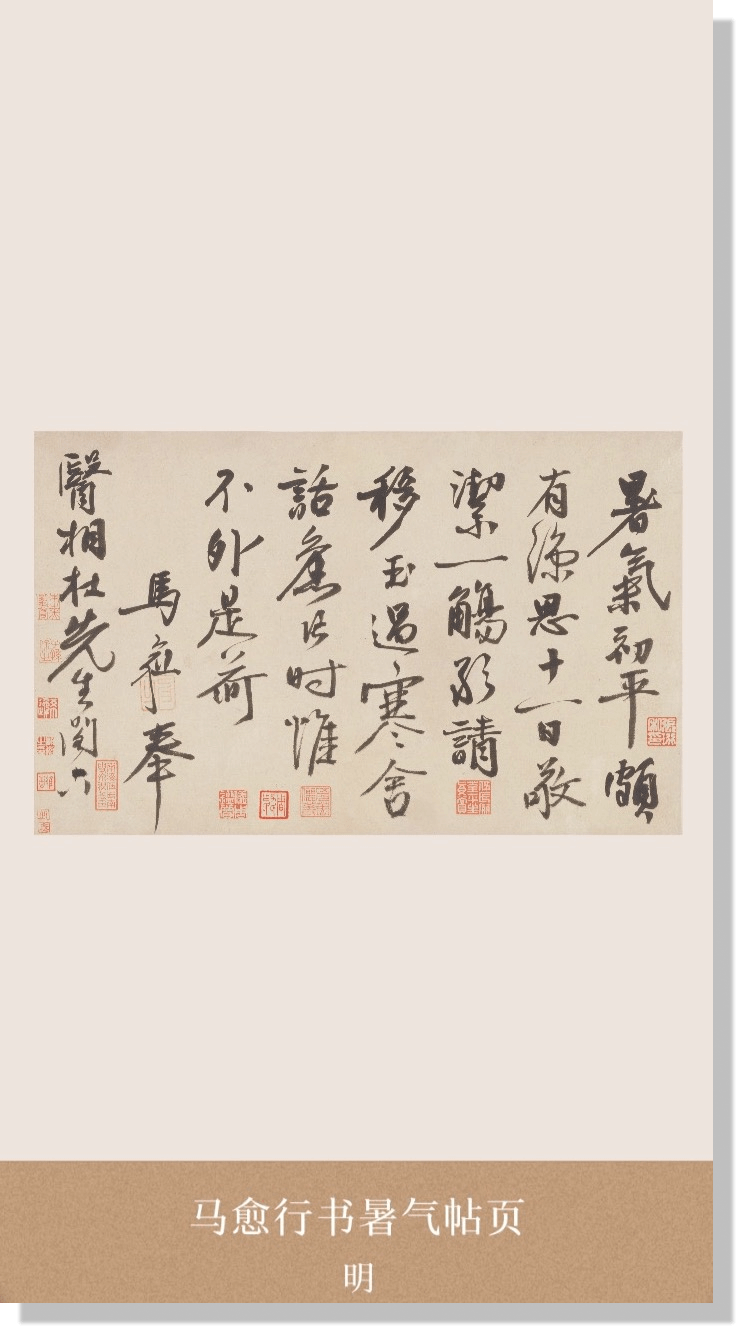 暑氣初平頗
有涼思十一日敬
潔一觴欲請
移玉過寒舍
話舊此时惟
不外是荷
馬愈奉
醫相杜先生閣下
马愈行书暑气帖页
明